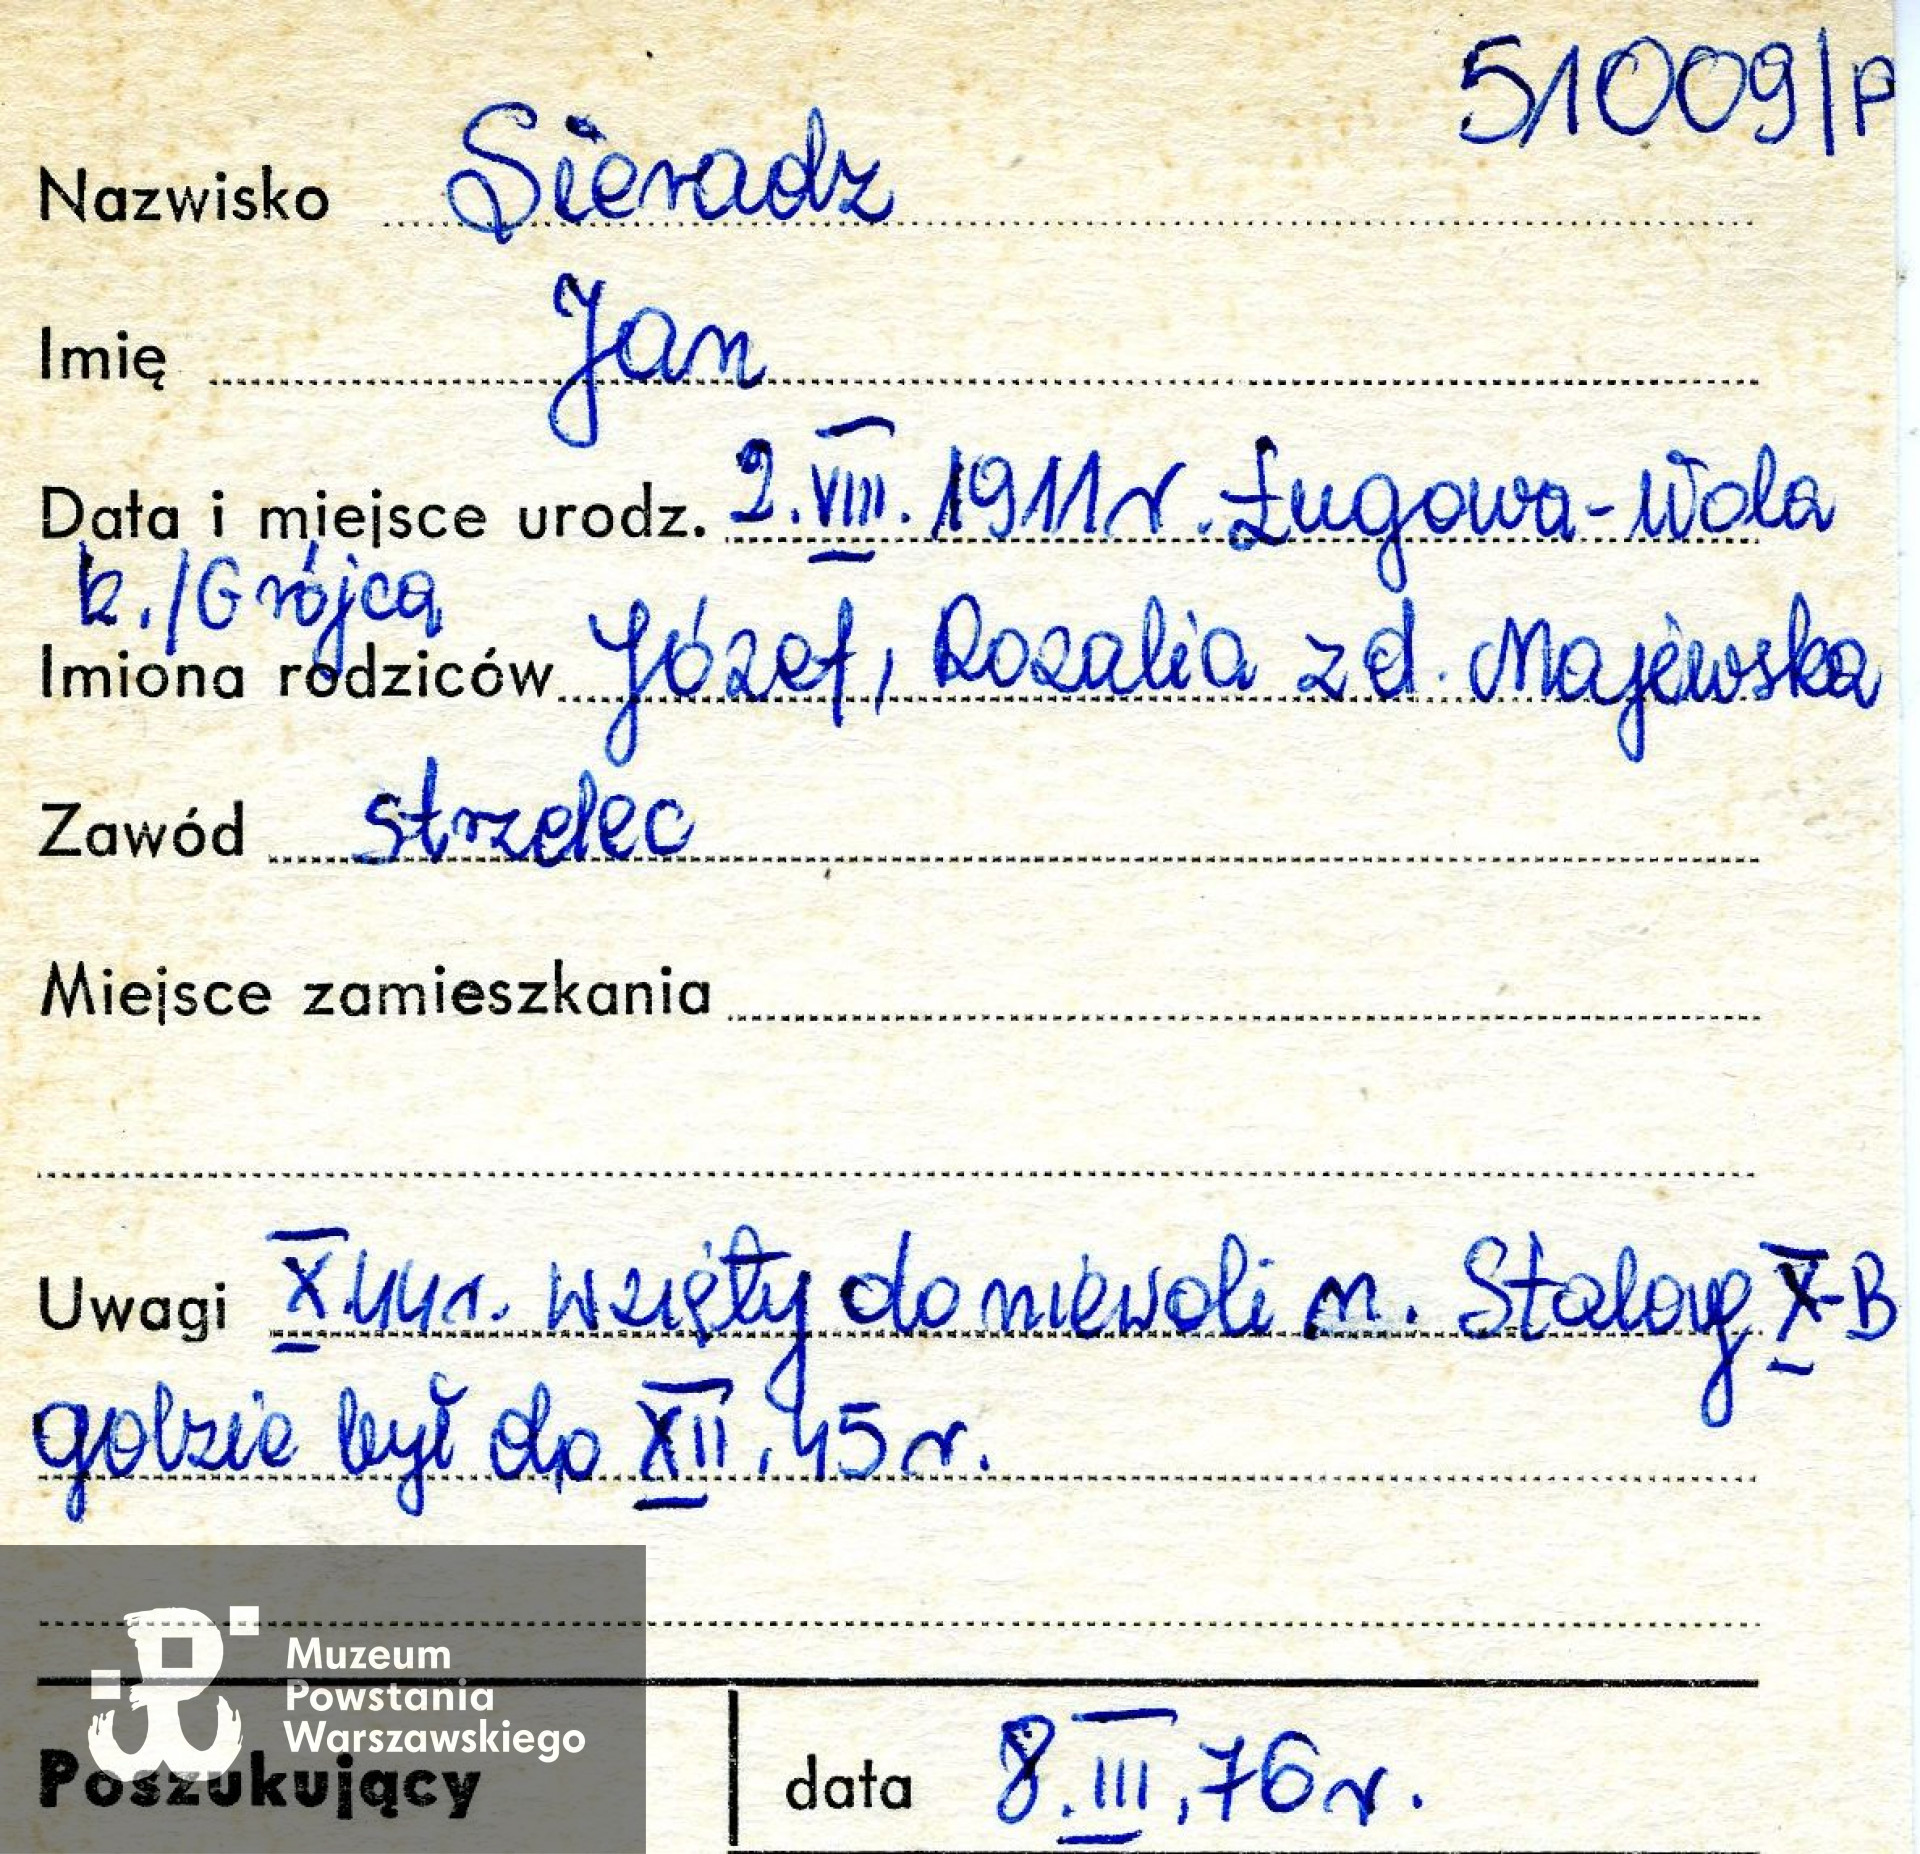 51009/P
Nazwisko Sieradz
Imię Jan
Data i miejsce urodz. 2.VIII.1911r. Ługowa-Wola
k./Grójca
Imiona rodziców Józef, Rozalia zd. Majewska
Zawód strzelec
Miejsce zamieszkania
Uwagi X.44r. wzięty do niewoli n. Stalag X-B
gdzie był do XII.45r.
Muzeum
Powstania
Warszawskiego
Poszukujący data 8.III.76r.